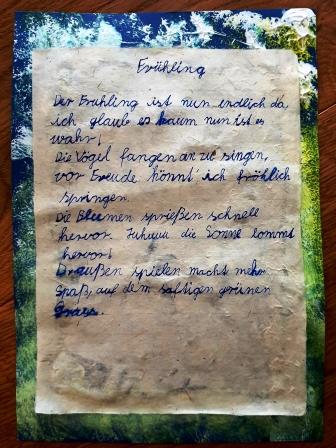 Frühling
Der Frühling ist nun endlich da,
ich glaub es kaum nun ist es
wahr!
Die Vögel fangen an zu singen,
vor Freude könnt ich fröhlich
springen.
Die Blumen sprießen schnell
hervor. Juhuuu die Sonne kommt
hervor!
Draußen spielen macht mehr
Spaß, auf dem saftigen grünen
Grass.